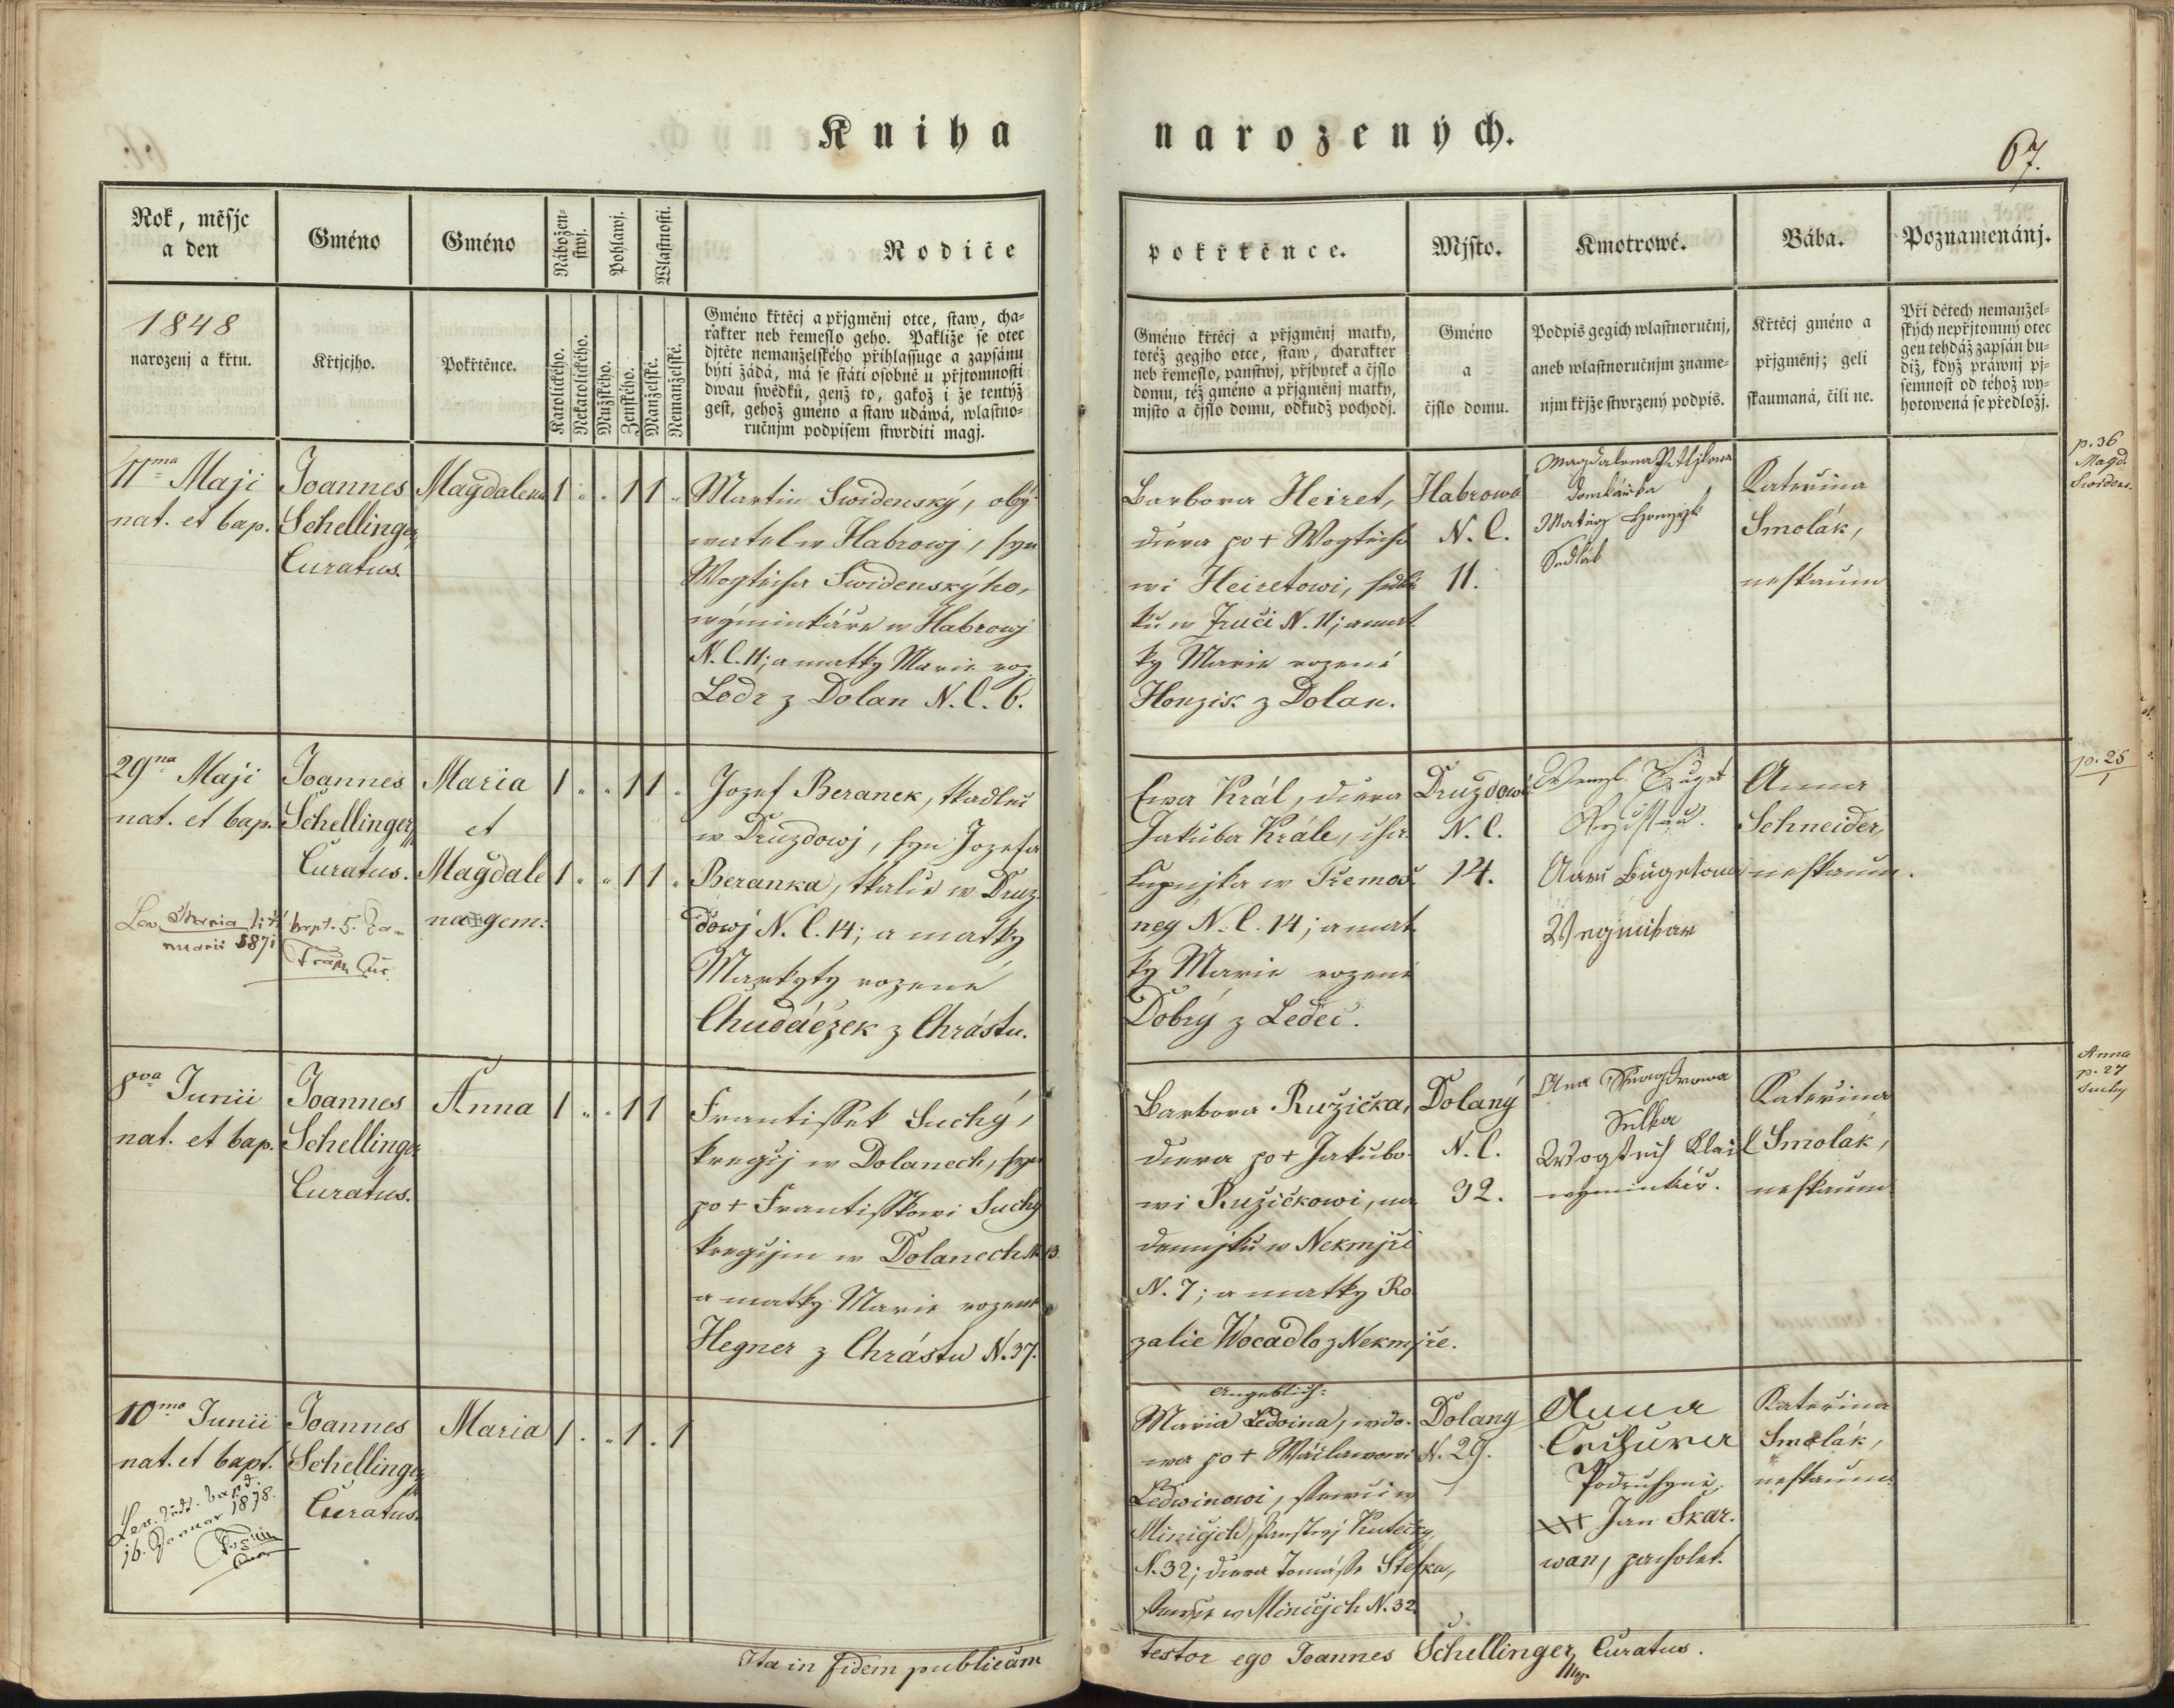 Kniha narozených.
67.
Rok, měsjc
a den
Gméno
Gméno
Nábožen-
stwj.
Pohlawj.
Wlastnosti.
Rodiče
1848
narozenj a křtu.
Křtjcjho.
Pokřtěnce.
Katolického.
Nekatolického.
Mužského.
Ženského.
Manželské.
Nemanželské.
Gméno křtěcj a přjgměnj otce, staw, cha-
rakter neb řemeslo geho. Pakliže se otec
djtěte nemanželského přihlašuge a zapsánu
býti žádá, má se státi osobně u přjtomnosti
dwau swědků, genž to, gakož i že tentýž
gest, gehož gméno a staw udáwá, wlastno-
ručnjm podpisem stwrditi magj.
pokřtěnce.
Mjsto.
Kmotrowé.
Bába.
Poznamenánj.
Gméno křtěcj a přjgměnj matky,
totéž gegjho otce, staw, charakter
neb řemeslo, panstwj, přjbytek a čjslo
domu, též gméno a přjgměnj matky,
mjsto a čjslo domu, odkudž pochodj.
Gméno
a
čjslo domu.
Podpis gegich wlastnoručnj,
aneb wlastnoručnjm zname-
njm křjže stwrzený podpis.
Křtěcj gméno a
přjgměnj; geli
skaumaná, čili ne.
Při dětech nemanžel-
ských nepřjtomný otec
gen tehdáž zapsán bu-
diž, když práwnj pj-
semnost od téhož wy-
hotowená se předložj.
11ma Maji
nat. et bap.
Joannes
Schellinger,
Curatus.
Magdalena
1 " " 1 1 "
Martin Swidenský, oby-
watel w Habrowj, syn
Wogtěcha Swidenskýho,
wýminkáře w Habrowj
N. C. 11; a matky Marie roz.
Lodr z Dolan N. C. 6.
Barbora Heiret,
dcera po + Wogtěcho
wi Heiretowi, sedlá
ku w Zruči N. 11; a mat
ky Marie rozené
Honzik z Dolan.
Habrowa
N. C.
11.
Magdalena
Domkářka
Matěg
Sedlák
Kateřina
Smolák,
neskaum
p. 36
Magd.
Swidens.
29na Maji
nat. et bap.
Joannes
Schellinger,
Curatus.
Maria
et
Magdale
na gem:
1 " " 1 1 "
1 " " 1 1 "
Jozef Beranek, tkadlec
w Druzdowj, syn Jozefa
Beranka, tkalce w Druz-
dowj N. C. 14; a matky
Markyty rozené
Chudáčzek z Chrástu.
Ewa Král, dcera
Jakuba Krále, cha
lupnjka w Třemoš
neg N. C. 14; a mat
ky Marie rozené
Dobrý z Ledec.
Druzdowá
N. C.
14.
Anna
Schneider,
neskaum.
p. 25
8va Junii
nat. et bap.
Joannes
Schellinger
Curatus.
Anna
1 " " 1 1
Frantissek Suchý,
kregčj w Dolanech, syn
po + Frantisskowi Suchý
kregčjm w Dolanech N. 13.
a matky Marie rozené
Hegner z Chrástu N. 37.
Barbora Ružička,
dcera po + Jakubo-
wi Ružičkowi, na
dennjku w Nekmjři
N. 7; a matky Ro
zalie Wocadlo z Nekmjře.
Dolaný
N. C.
32.
Selka
Wogtěch
wyminkář.
Kateřina
Smolák,
neskaum
Anna
p. 27
Suchy
10ma Junii
nat. et bapt.
Joannes
Schellinger,
Curatus.
Maria
1 . " 1 . 1
angeblich:
Maria Ledwina, wdo-
wa po + Wáclawowi
Ledwinowi,
Miničjch, Panstwj
N. 32; dcera Tomásse Stefka,
w Miničjch N. 32.
Dolany
N. 29.
Anna
Podruhyně.
xxx Jan Skar-
wan, pacholek.
Kateřina
Smolák,
neskaum
Ita in fidem publicam
testor ego Joannes Schellinger, Curatus.